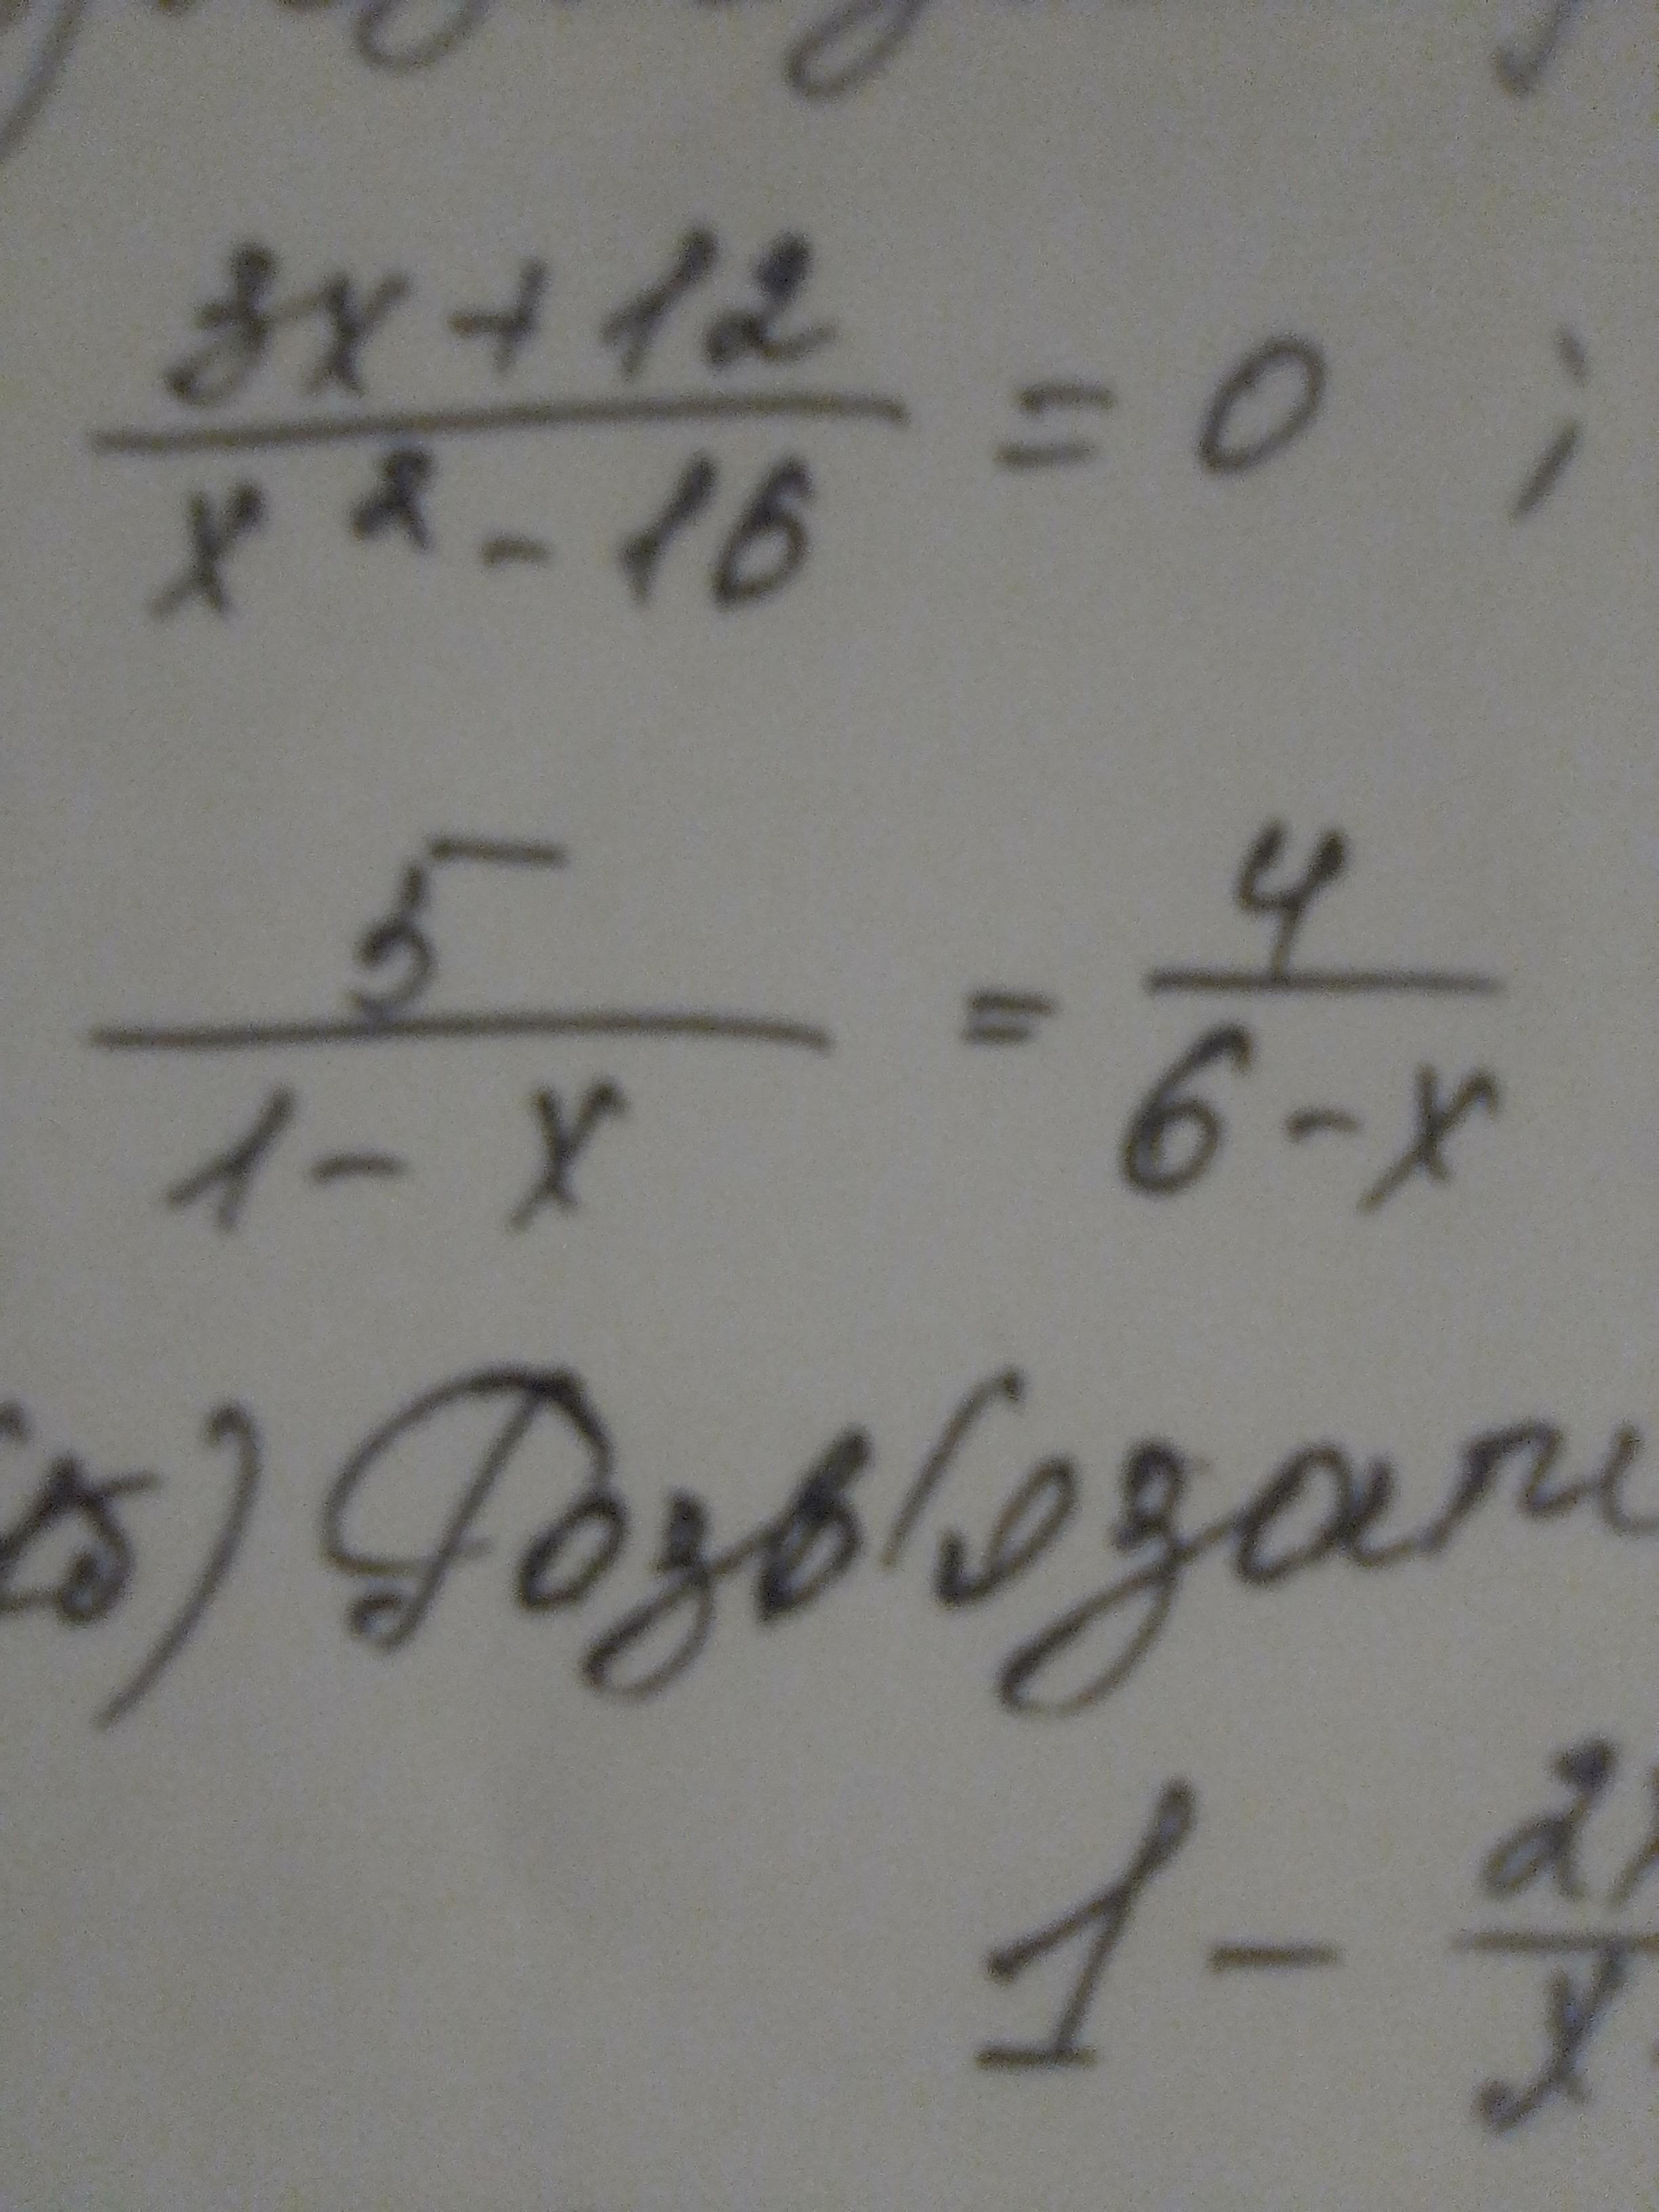 3x+12
x²-16 = 0 ;
5 = 4
1-x 6-x
) Розв'язати
1 - 2
x